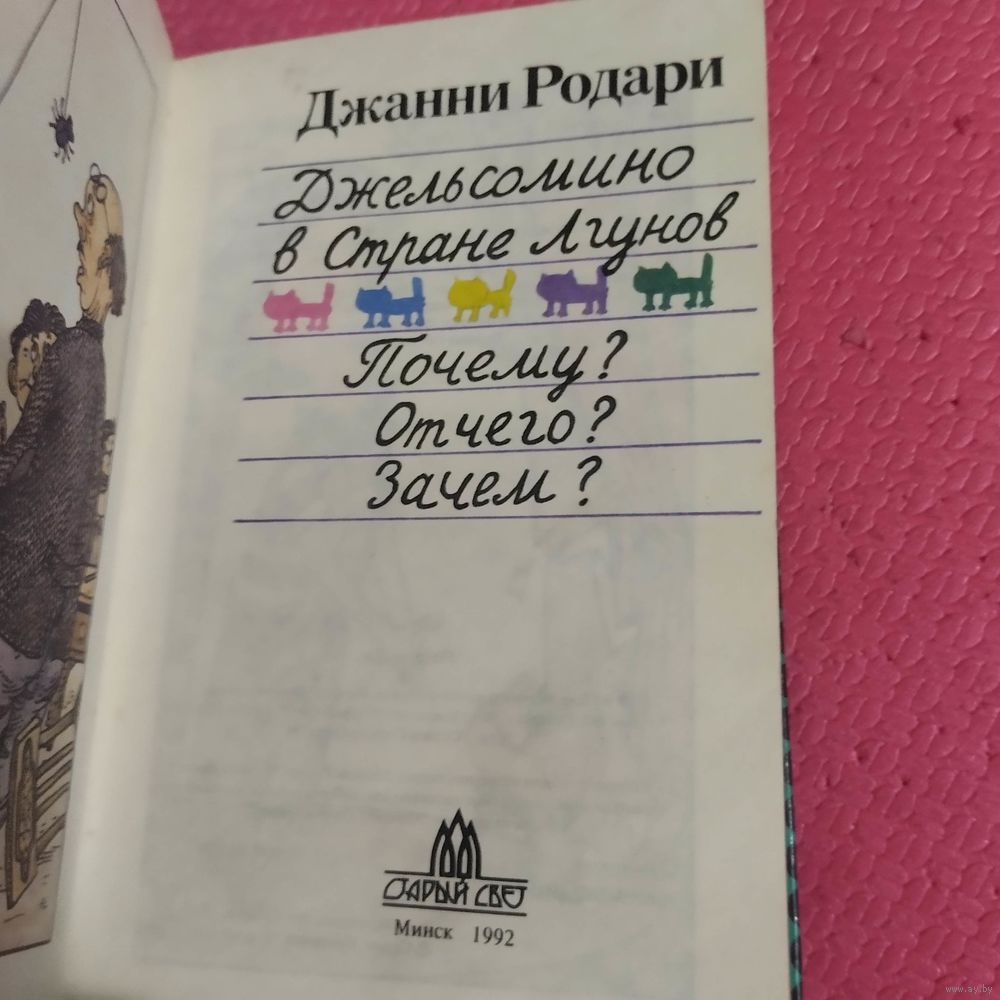 Джанни Родари
Джельсомино
в Стране Лгунов
Почему?
Отчего?
Зачем?
СТАРЫЙ СВЕТ
Минск 1992
www.ay.by